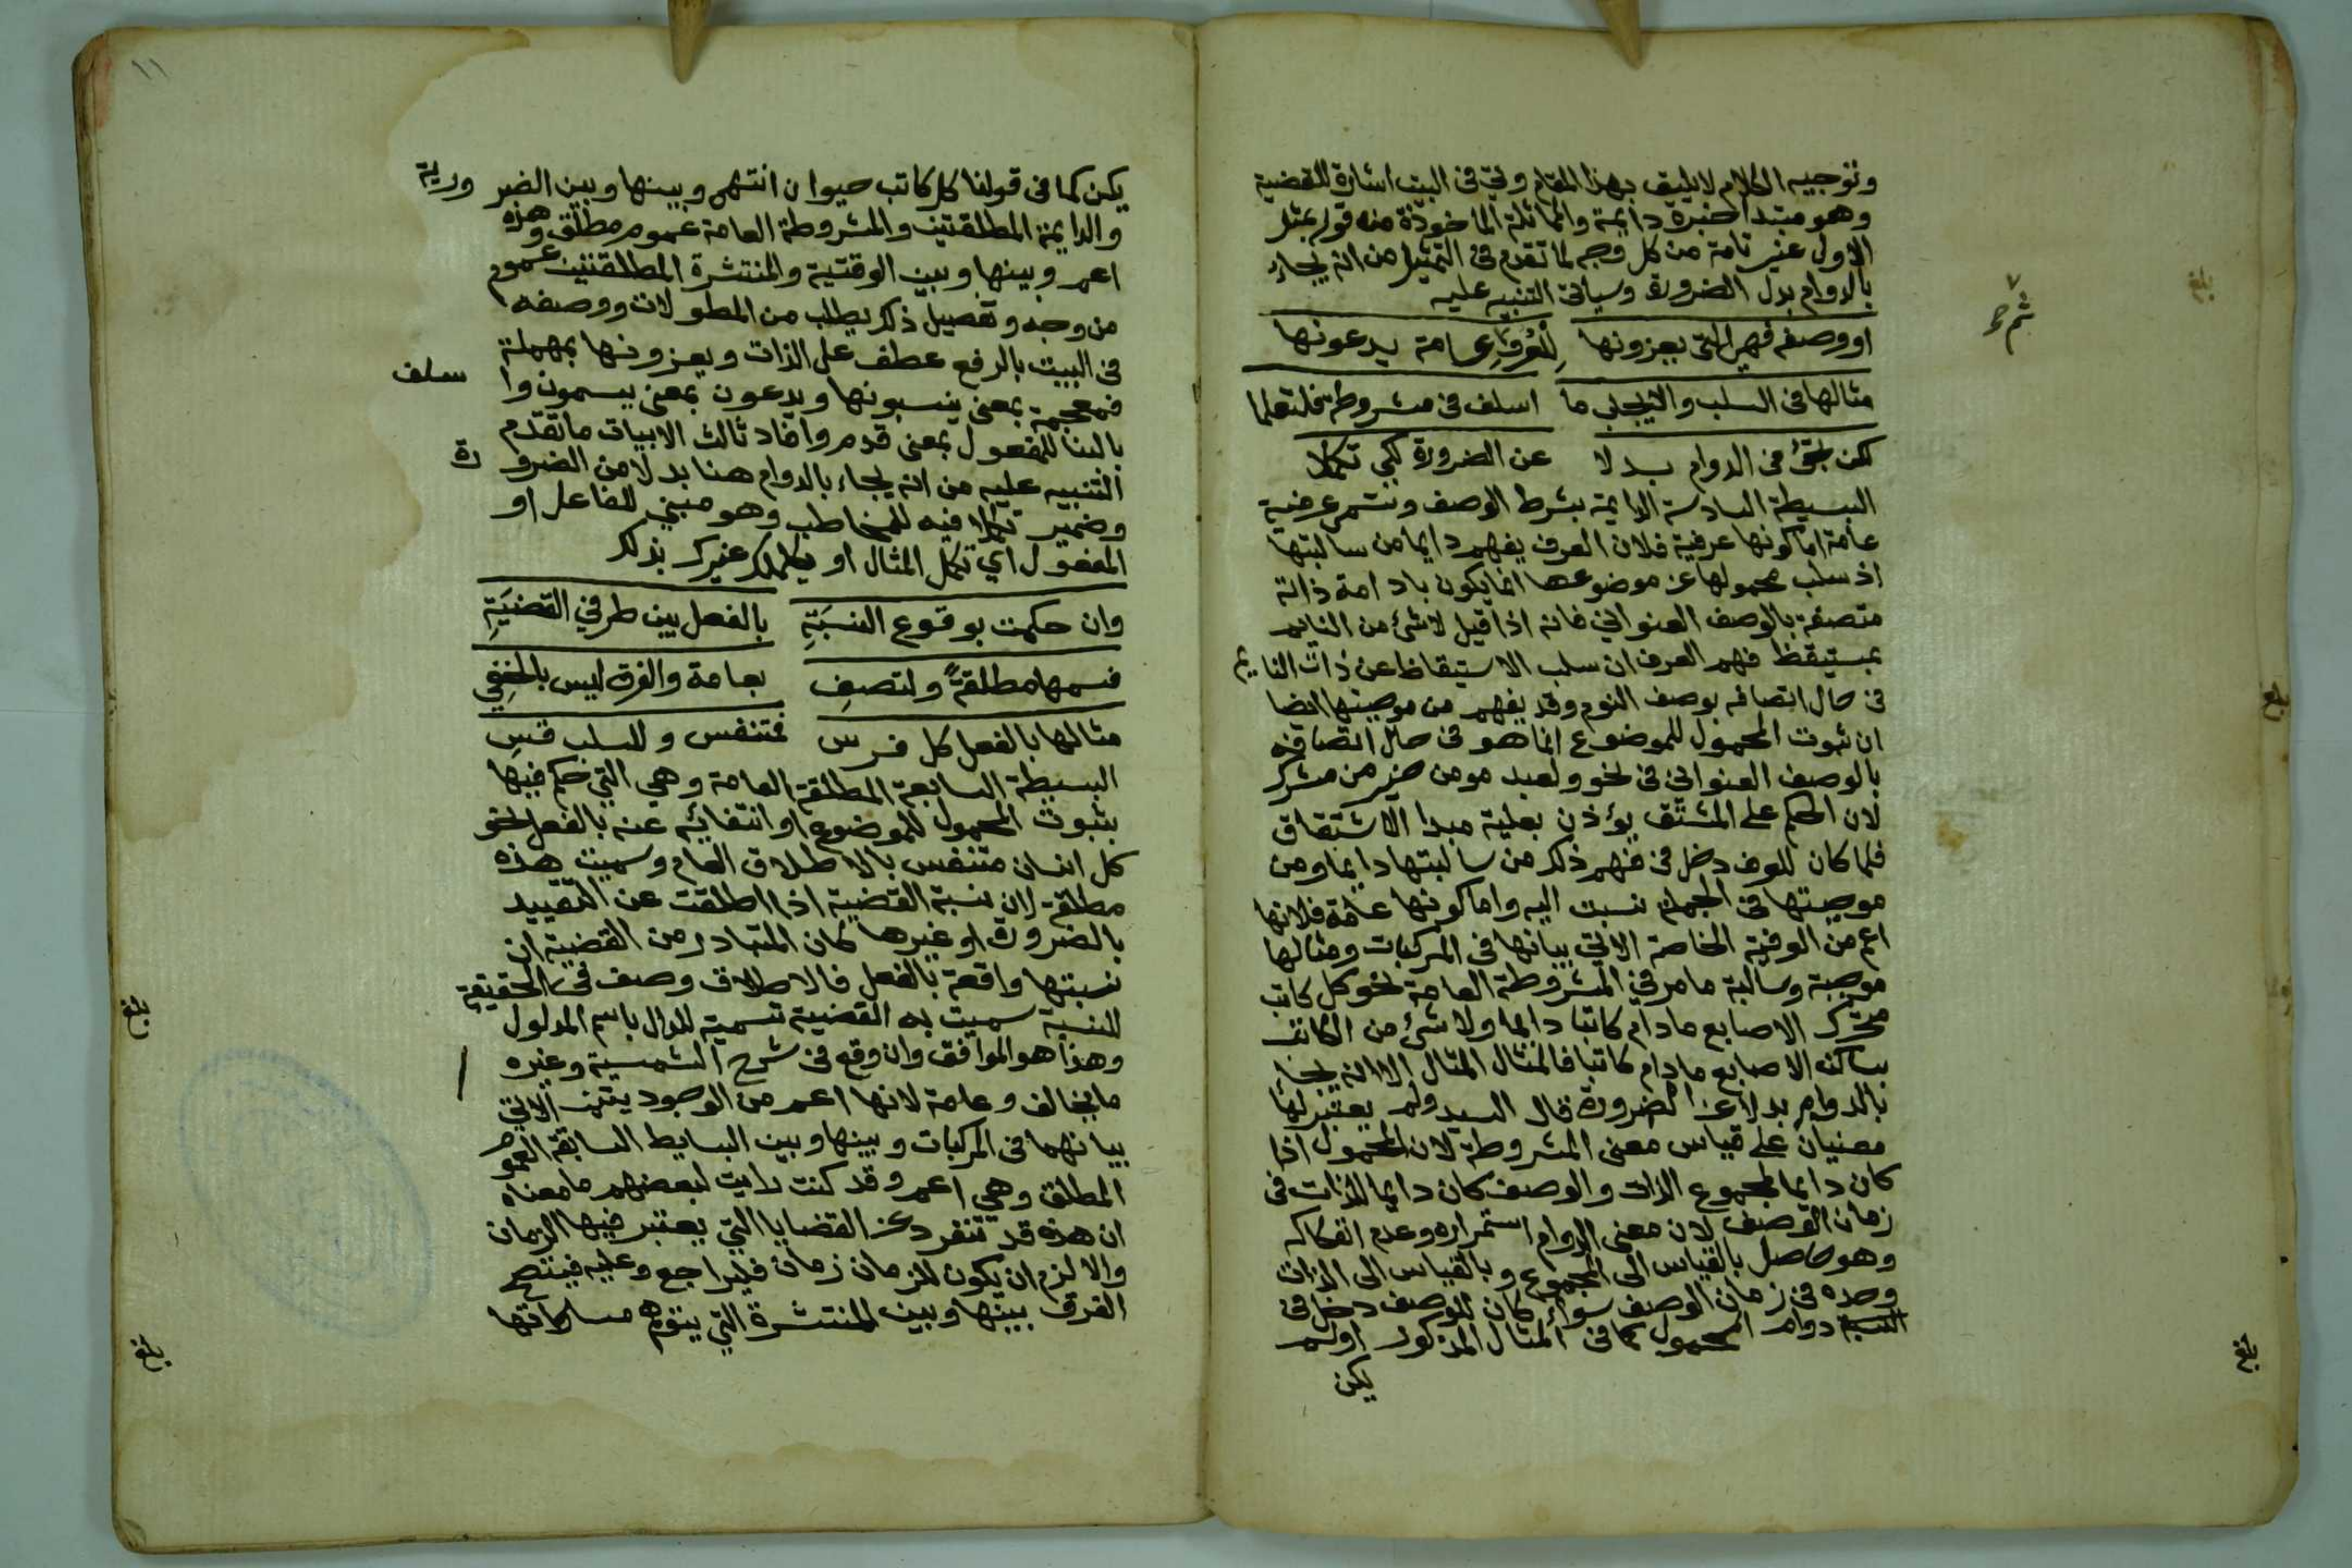 وتوجيه الكلام لا يليق بهذا المقام وفي في البيت اشارة للقضية
وهو مبتدا خبره دايمة والمماثلة الماخوذة منه قوله بمثل
الاول غير تامة من كل وجه لما تقدم في التمثيل من انه يجاء
بالدوام بدل الضرورة وسياتي التنبيه عليه
او وصفه فهي التي يعزونها للعرف عامة يدعونها
مثالها في السلب والايجاب ما اسلف في مشروطة فلتعلما
لكن بالدوام بدلا عن الضرورة لكي تكملا
البسيطة السادسة الدايمة بشرط الوصف وتسمى عرفية
عامة اما كونها عرفية فلان العرف يفهم دايما من سالبتها
اذ سلب محمولها عن موضوعها انما يكون بادامة ذاته
متصفة بالوصف العنواني فانه اذا قيل لا شئ من النايم
بمستيقظ فهم العرف ان سلب الاستيقاظ عن ذات النايم
في حال اتصافه بوصف النوم وقد يفهم من موجبتها ايضا
ان ثبوت المحمول للموضوع انما هو في حال اتصافه
بالوصف العنواني في نحو ولعبد مومن خير من مشرك
لان الحكم على المشتق يؤذن بعلية مبدا الاشتقاق
فلما كان للعرف دخل في فهم ذلك من سالبتها دايما ومن
موجبتها في الجملة نسبت اليه واما كونها عامة فلانها
اعم من العرفية الخاصة الاتي بيانها في المركبات ومثالها
موجبة وسالبة ما مر في المشروطة العامة نحو كل كاتب
متحرك الاصابع مادام كاتبا دائما ولا شئ من الكاتب
بساكن الاصابع مادام كاتبا فالمثال المثال الا انه يجاء
بالدوام بدلا عن الضرورة قال السيد ولم يعتبر لها
معنيان على قياس معنى المشروطة لان المحمول اذا
كان دايما لمجموع الذات والوصف كان دايما للذات في
زمان الوصف لان معنى الدوام استمراره وعدم انفكاكه
وهو حاصل بالقياس الى المجموع وبالقياس الى الذات
وحده في زمان الوصف سواء كان للوصف دخل في
دوام المحمول كما في المثال المذكور اولم
يكن
بلغ
بلغ
بلغ
١١
يكن كما في قولنا كل كاتب حيوان انتهى وبينها وبين الضرورية
والدايمة المطلقتين والمشروطة العامة عموم مطلق وهذه
اعم وبينها وبين الوقتية والمنتشرة المطلقتين عموم
من وجه وتفصيل ذلك يطلب من المطولات ووصفه
في البيت بالرفع عطف على الذات ويعزونها بمهملة
فمعجمة بمعنى ينسبونها ويدعون بمعنى يسمون واسلف
بالبنا للمفعول بمعنى قدم وافاد ثالث الابيات ما تقدم
التنبيه عليه من انه يجاء بالدوام هنا بدلا من الضرورة
وضمير تكملا فيه للمخاطب وهو مبني للفاعل او
المفعول اي تكمل المثال او يكمله غيرك بذلك
وان حكمت بوقوع النسبَةِ بالفعل بين طرفي القضيَةِ
فسمها مطلقةً ولتصفِ بعامة والفرق ليس بالخفِي
مثالها بالفعل كل فرس متنفس وللسلب قسِ
البسيطة السابعة المطلقة العامة وهي التي حكم فيها
بثبوت المحمول للموضوع او انتفائه عنه بالفعل نحو
كل انسان متنفس بالاطلاق العام وسميت هذه
مطلقة لان نسبة القضية اذا اطلقت عن التقييد
بالضرورة او غيرها كان المتبادر من القضية ان
نسبتها واقعة بالفعل فالاطلاق وصف في الحقيقة
للنسبة سميت به القضية تسمية للدال باسم المدلول
وهذا هو الموافق وان وقع في شرح الشمسية وغيره
ما يخالف وعامة لانها اعم من الوجوديتين الاتي
بيانهما في المركبات وبينها وبين البسايط السابقة العموم
المطلق وهي اعم وقد كنت رايت لبعضهم ما معناه
ان هذه قد تنفرد عن القضايا التي يعتبر فيها الزمان
والا لزم ان يكون للزمان زمان فليراجع وعليه فيتضح
الفرق بينها وبين المنتشرة التي يتوهم مساواتها
بلغ
بلغ